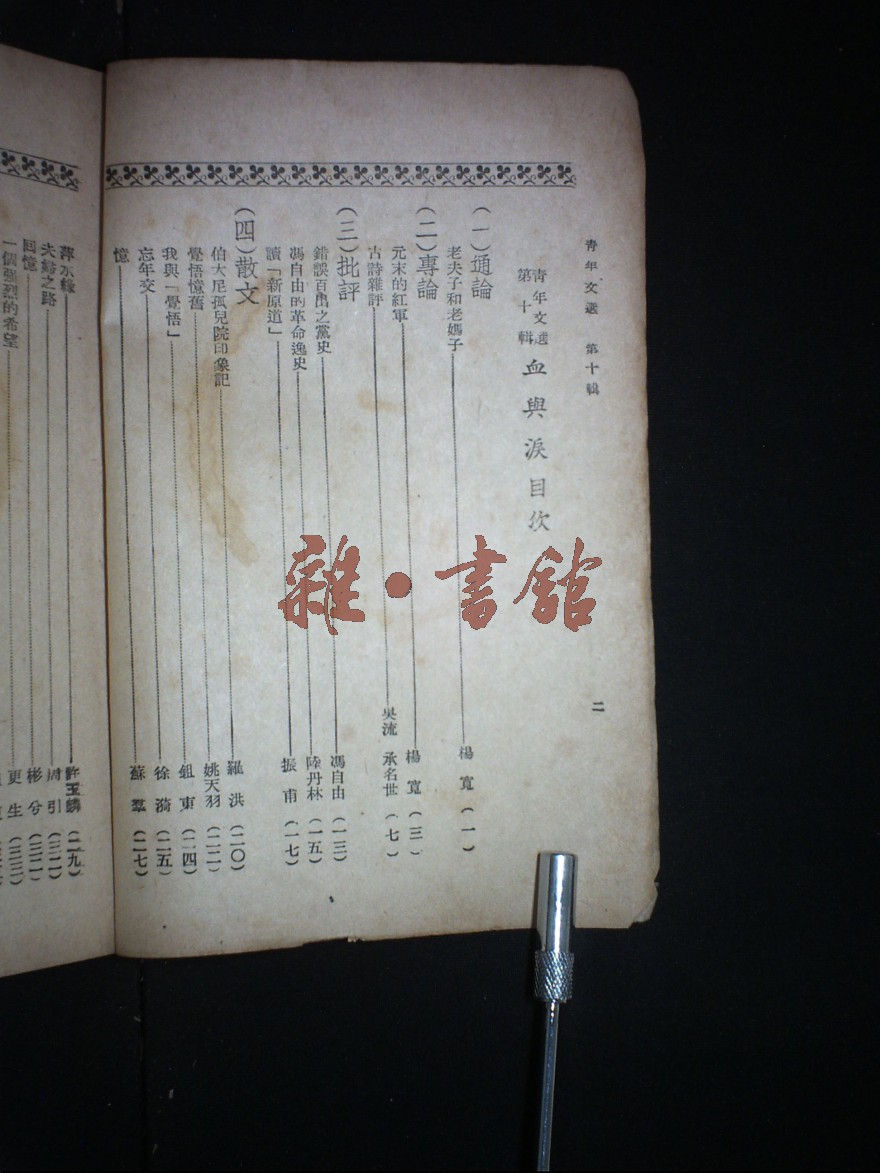 青年文選　第十輯　二
青年文選
第十輯
血與淚目次
（一）通論
老夫子和老媽子　楊寬（一）
（二）專論
元末的紅軍　楊寬（三）
古詩雜評　吳流　承名世（七）
（三）批評
錯誤百出之黨史　馮自由（一三）
馮自由的革命逸史　陸丹林（一五）
讀「新原道」　振甫（一七）
（四）散文
伯大尼孤兒院印象記　羅洪（二〇）
覺悟憶舊　姚天羽（二二）
我與「覺悟」　鉏東（二四）
忘年交　徐漪（二五）
憶　蘇羣（二七）
萍水緣　許玉麟（二九）
夫緒之路　周引（三二）
回憶　彬兮（三二）
一個強烈的希望　更生（三三）
雜·書館